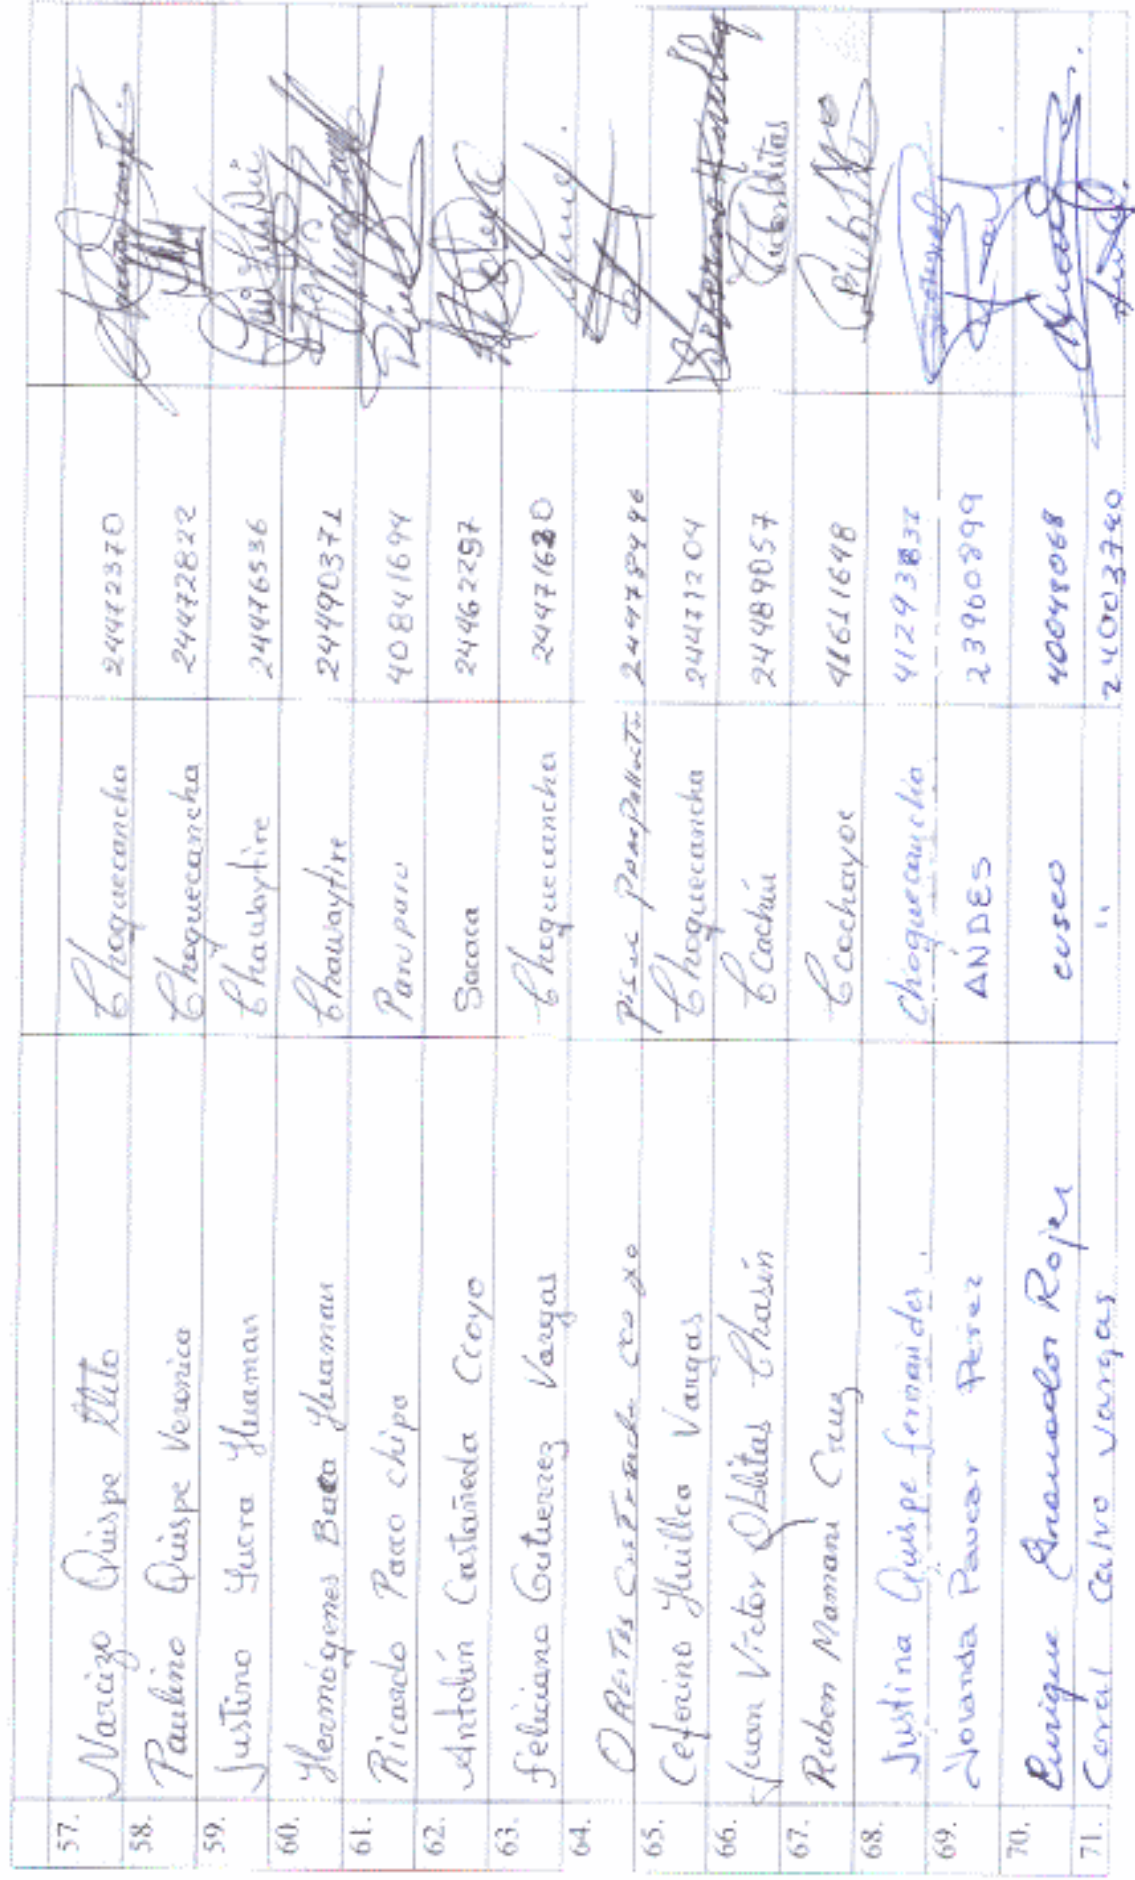 57. Narcizo Quispe Choquecancha 24472370
58. Paulino Quispe Veronica Choquecancha 24472822
59. Justino Yucra Huaman Chawaytire 24476536
60. Hermógenes Baca Huaman Chawaytire 24490371
61. Ricardo Paco chipa Paru paru 40841694
62. Antolín Castañeda Ccoyo Sacaca 24462297
63. Feliciano Gutierrez Vargas Choquecancha 24471630
64. ORESTES Pisac 24478496
65. Ceferino Huillca Vargas Choquecancha 24471204
66. Juan Victor Oblitas Chasín Ccachin 24489057 Oblitas
67. Ruben Mamani Cruz Ccochayoc 41611648
68. Justina Quispe fernander Choquecancha 41293832
69. Jovanda Paucar Perez ANDES 23960899
70. Enrique Rojas cusco 40048068
71. Coral Calvo Vargas " 24003740